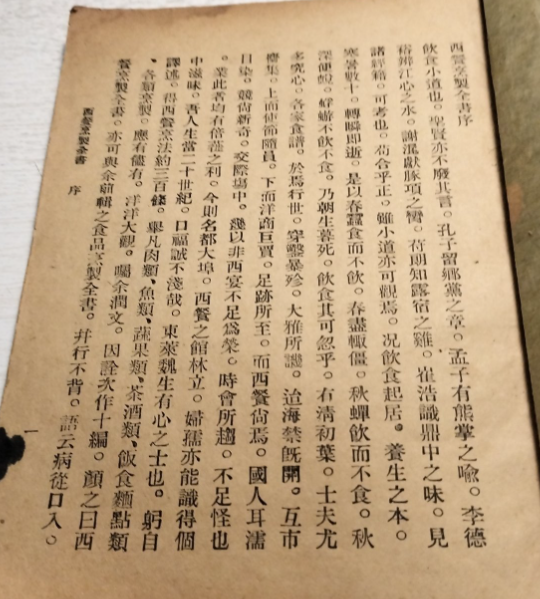 西餐烹製全書序
飲食小道也。聖賢亦不廢其言。孔子留鄉黨之章。孟子有熊掌之喩。李德
裕辨江心之水。謝混獻豚項之臠。苻朗知露宿之雞。崔浩識鼎中之味。見
諸經籍。可考也。苟合乎正。雖小道亦可觀焉。况飲食起居。養生之本。
寒暑數十。轉瞬即逝。是以春蠶食而不飲。春盡輙僵。秋蟬飲而不食。秋
深便蛻。蜉蝣不飲不食。乃朝生暮死。飲食其可忽乎。有清初葉。士夫尤
多究心。各家食譜。於焉行世。穿鑿暴殄。大雅所譏。迨海禁旣開。互市
麕集。上而使節隨員。下而洋商巨賈。足跡所至。而西餐尙焉。國人耳濡
目染。競尙新奇。交際塲中。幾以非西宴不足爲榮。時會所趨。不足怪也
。業此者均有倍蓰之利。今則名都大埠。西餐之館林立。婦孺亦能識得個
中滋味。吾人生當二十世紀。口福誠不淺哉。東萊魏生有心之士也。躬自
譯述。得西餐烹法約三百條。舉凡肉類、魚類、蔬果類、茶酒類、飯食麵點類
、各類烹製。應有儘有。洋洋大觀。囑余潤文。因詮次作十編。顏之曰西
餐烹製全書。亦可與余前輯之食品烹製全書。并行不背。語云病從口入。
西餐烹製全書 序 一